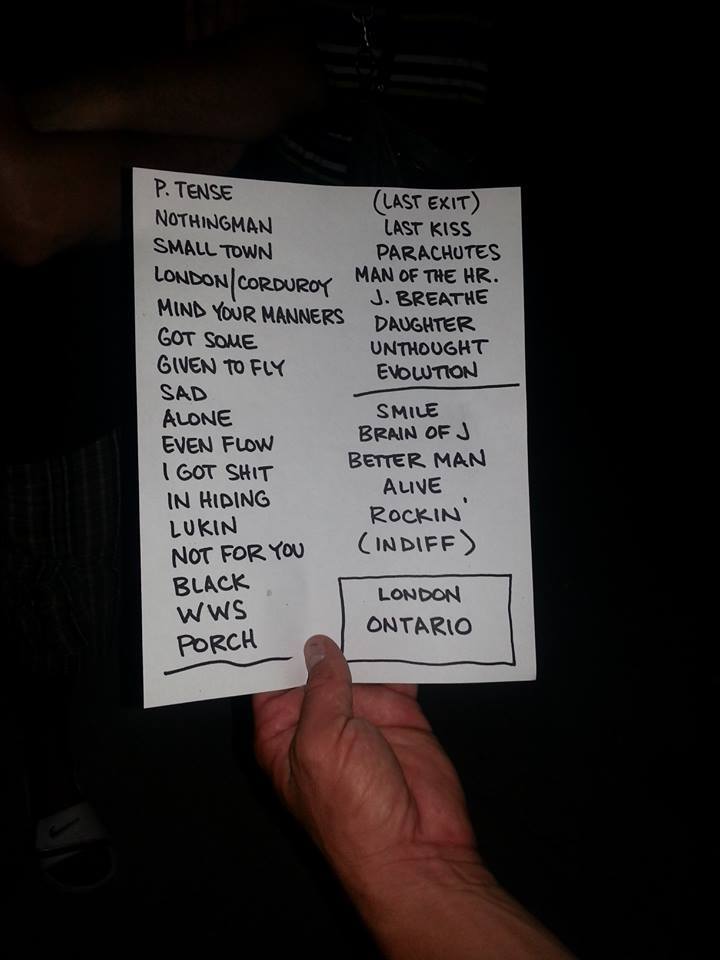 P. TENSE
NOTHINGMAN
SMALL TOWN
LONDON/CORDUROY
MIND YOUR MANNERS
GOT SOME
GIVEN TO FLY
SAD
ALONE
EVEN FLOW
I GOT SHIT
IN HIDING
LUKIN
NOT FOR YOU
BLACK
WWS
PORCH
(LAST EXIT)
LAST KISS
PARACHUTES
MAN OF THE HR.
J. BREATHE
DAUGHTER
UNTHOUGHT
EVOLUTION
SMILE
BRAIN OF J
BETTER MAN
ALIVE
ROCKIN'
(INDIFF)
LONDON
ONTARIO